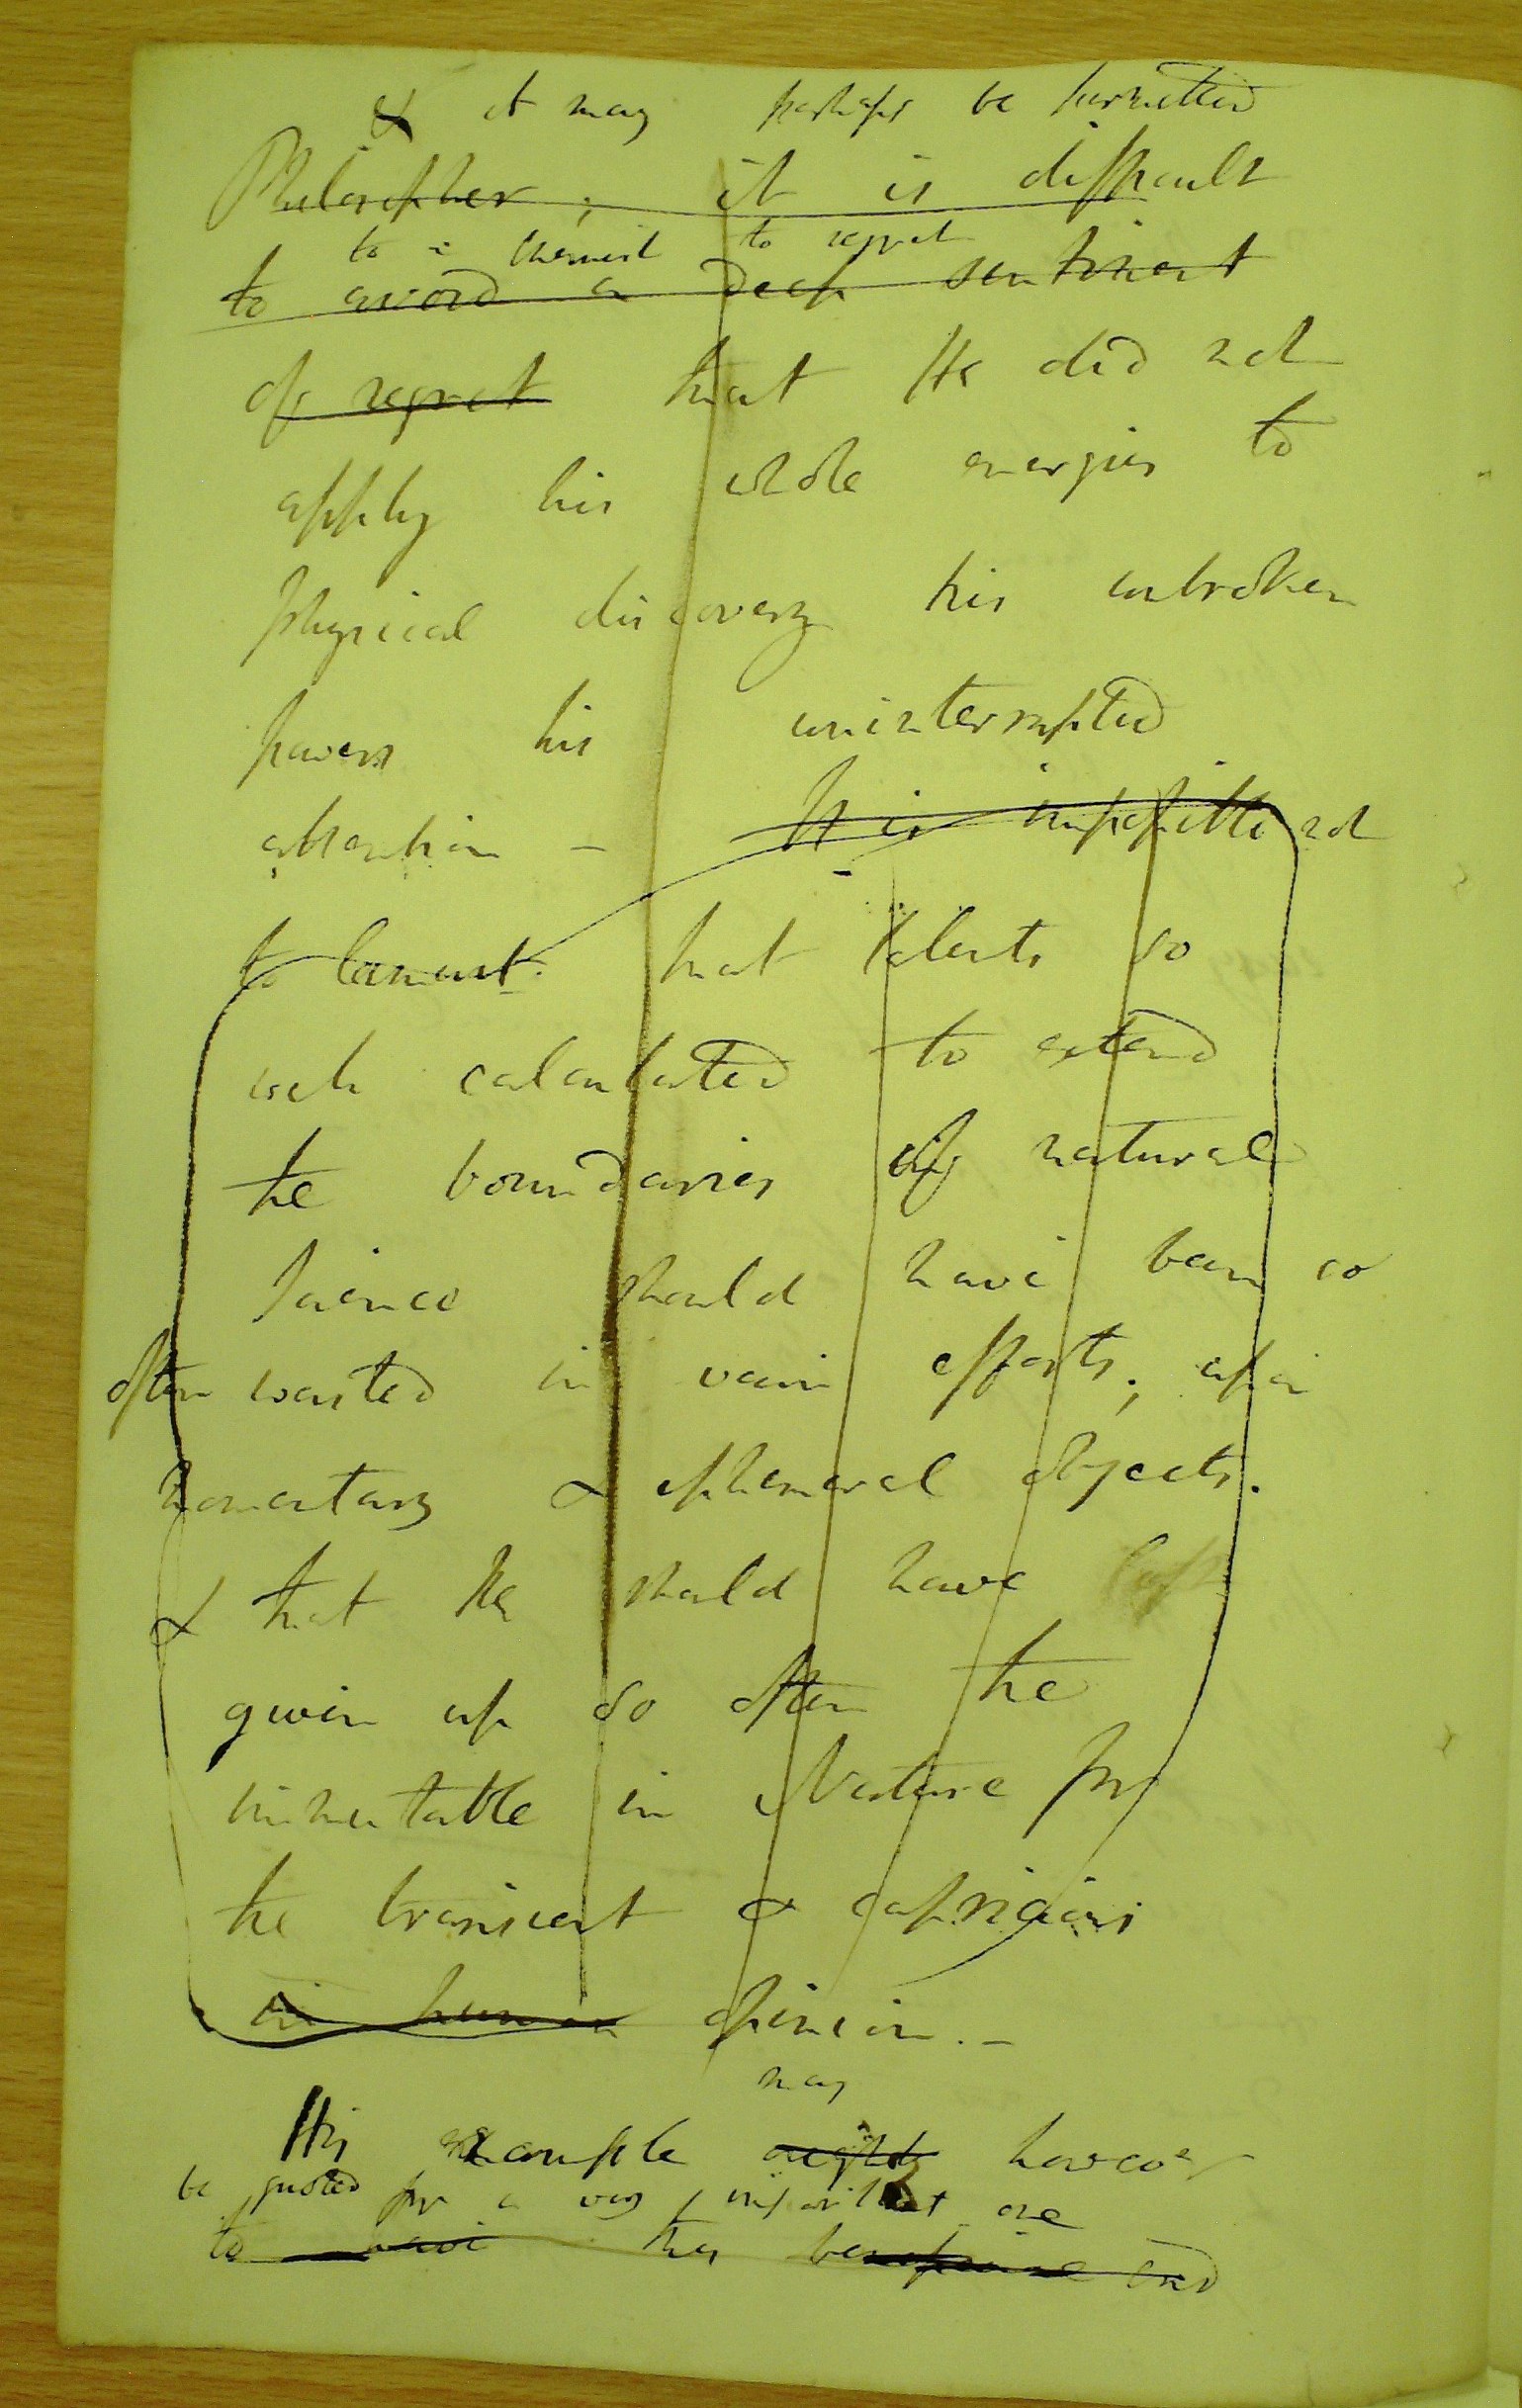 & it may perhaps be permitted
Philosopher; it is difficult
to a chemist to regret
to avoid a deep sentiment
of regret that He did not
apply his whole energies to
physical discovery his unbroken
powers his uninterrupted
attention - It is impossible not
to lament that talents so
well calculated to extend
the boundaries of natural
Science should have been so
often wasted in vain efforts; upon
momentary & ephemeral objects.
& that He should have
given up so often the
immutable in Nature for
the transient & capricious
in human opinion. -
may
His example ought however
be quoted for a very important one
to have this beneficial end